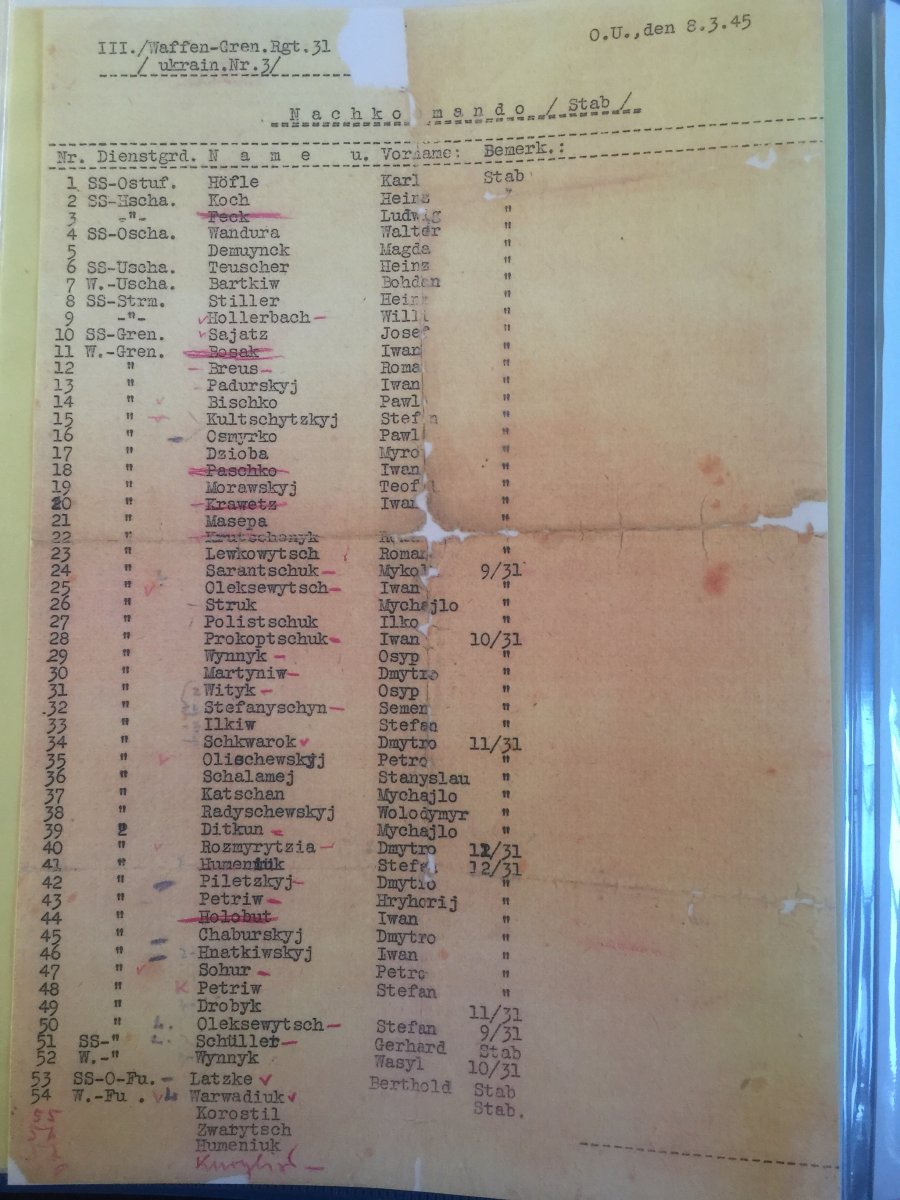 O.U.,den 8.3.45
III./Waffen-Gren.Rgt.31
/ ukrain.Nr.3/
Nachko mando / Stab /
Nr. Dienstgrd. N a m e u. Vorname: Bemerk.:
1 SS-Ostuf. Höfle Karl Stab
2 SS-Hscha. Koch Heinz "
3 -"- Feck Ludwig "
4 SS-Oscha. Wandura Walter "
5 Demuynck Magda "
6 SS-Uscha. Teuscher Heinz "
7 W.-Uscha. Bartkiw Bohdan "
8 SS-Strm. Stiller Hein "
9 -"- Hollerbach Will "
10 SS-Gren. Sajatz Josef "
11 W.-Gren. Bosak Iwan "
12 " Breus Roma "
13 " Padurskyj Iwan "
14 " Bischko Pawl "
15 " Kultschytzkyj Stef n "
16 " Osmyrko Pawl "
17 " Dzioba Myro "
18 " Paschko Iwan "
19 " Morawskyj Teof "
20 " Krawetz Iwan "
21 " Masepa "
22 " Krutschenyk
23 " Lewkowytsch Roman "
24 " Sarantschuk Mykol 9/31
25 " Oleksewytsch Iwan "
26 " Struk Mychajlo "
27 " Polistschuk Ilko "
28 " Prokoptschuk Iwan 10/31
29 " Wynnyk Osyp "
30 " Martyniw Dmytro "
31 " Wityk Osyp "
32 " Stefanyschyn Semen "
33 " Ilkiw Stefan "
34 " Schkwarok Dmytro 11/31
35 " Olischewskyj Petro "
36 " Schalamej Stanyslau "
37 " Katschan Mychajlo "
38 " Radyschewskyj Wolodymyr "
39 " Ditkun Mychajlo "
40 " Rozmyrytzia Dmytro 12/31
41 " Humeniuk Stefa 12/31
42 " Piletzkyj Dmytro "
43 " Petriw Hryhorij "
44 " Holobut Iwan "
45 " Chaburskyj Dmytro "
46 " Hnatkiwskyj Iwan "
47 " Sohur Petro "
48 " Petriw Stefan "
49 " Drobyk 11/31
50 " Oleksewytsch Stefan 9/31
51 SS-" Schüller Gerhard Stab
52 W.-" Wynnyk Wasyl 10/31
53 SS-O-Fu. Latzke Berthold Stab
54 W.-Fu . Warwadiuk Stab.
55 Korostil
Zwarytsch
Humeniuk